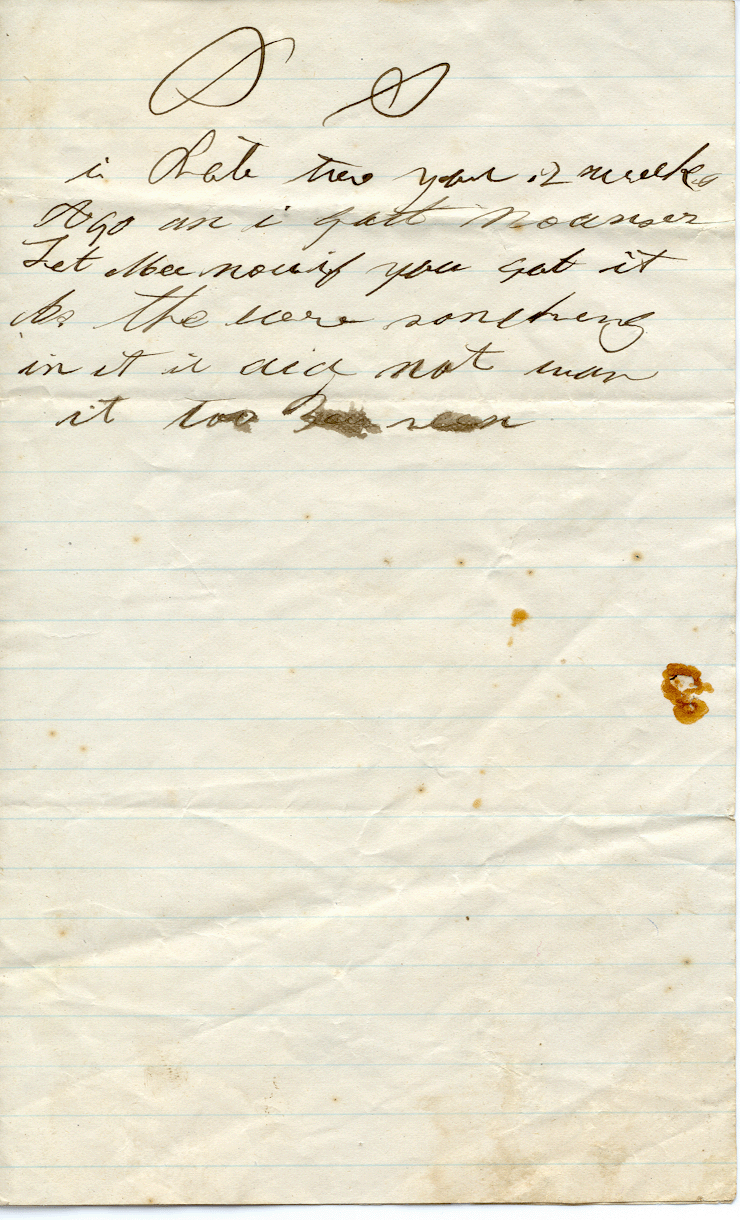 P S
i Rote two you 2 weeks
Ago an i gatt No anser
Let Mee now if you got it
As the were something
in it i did not wan
it too seen